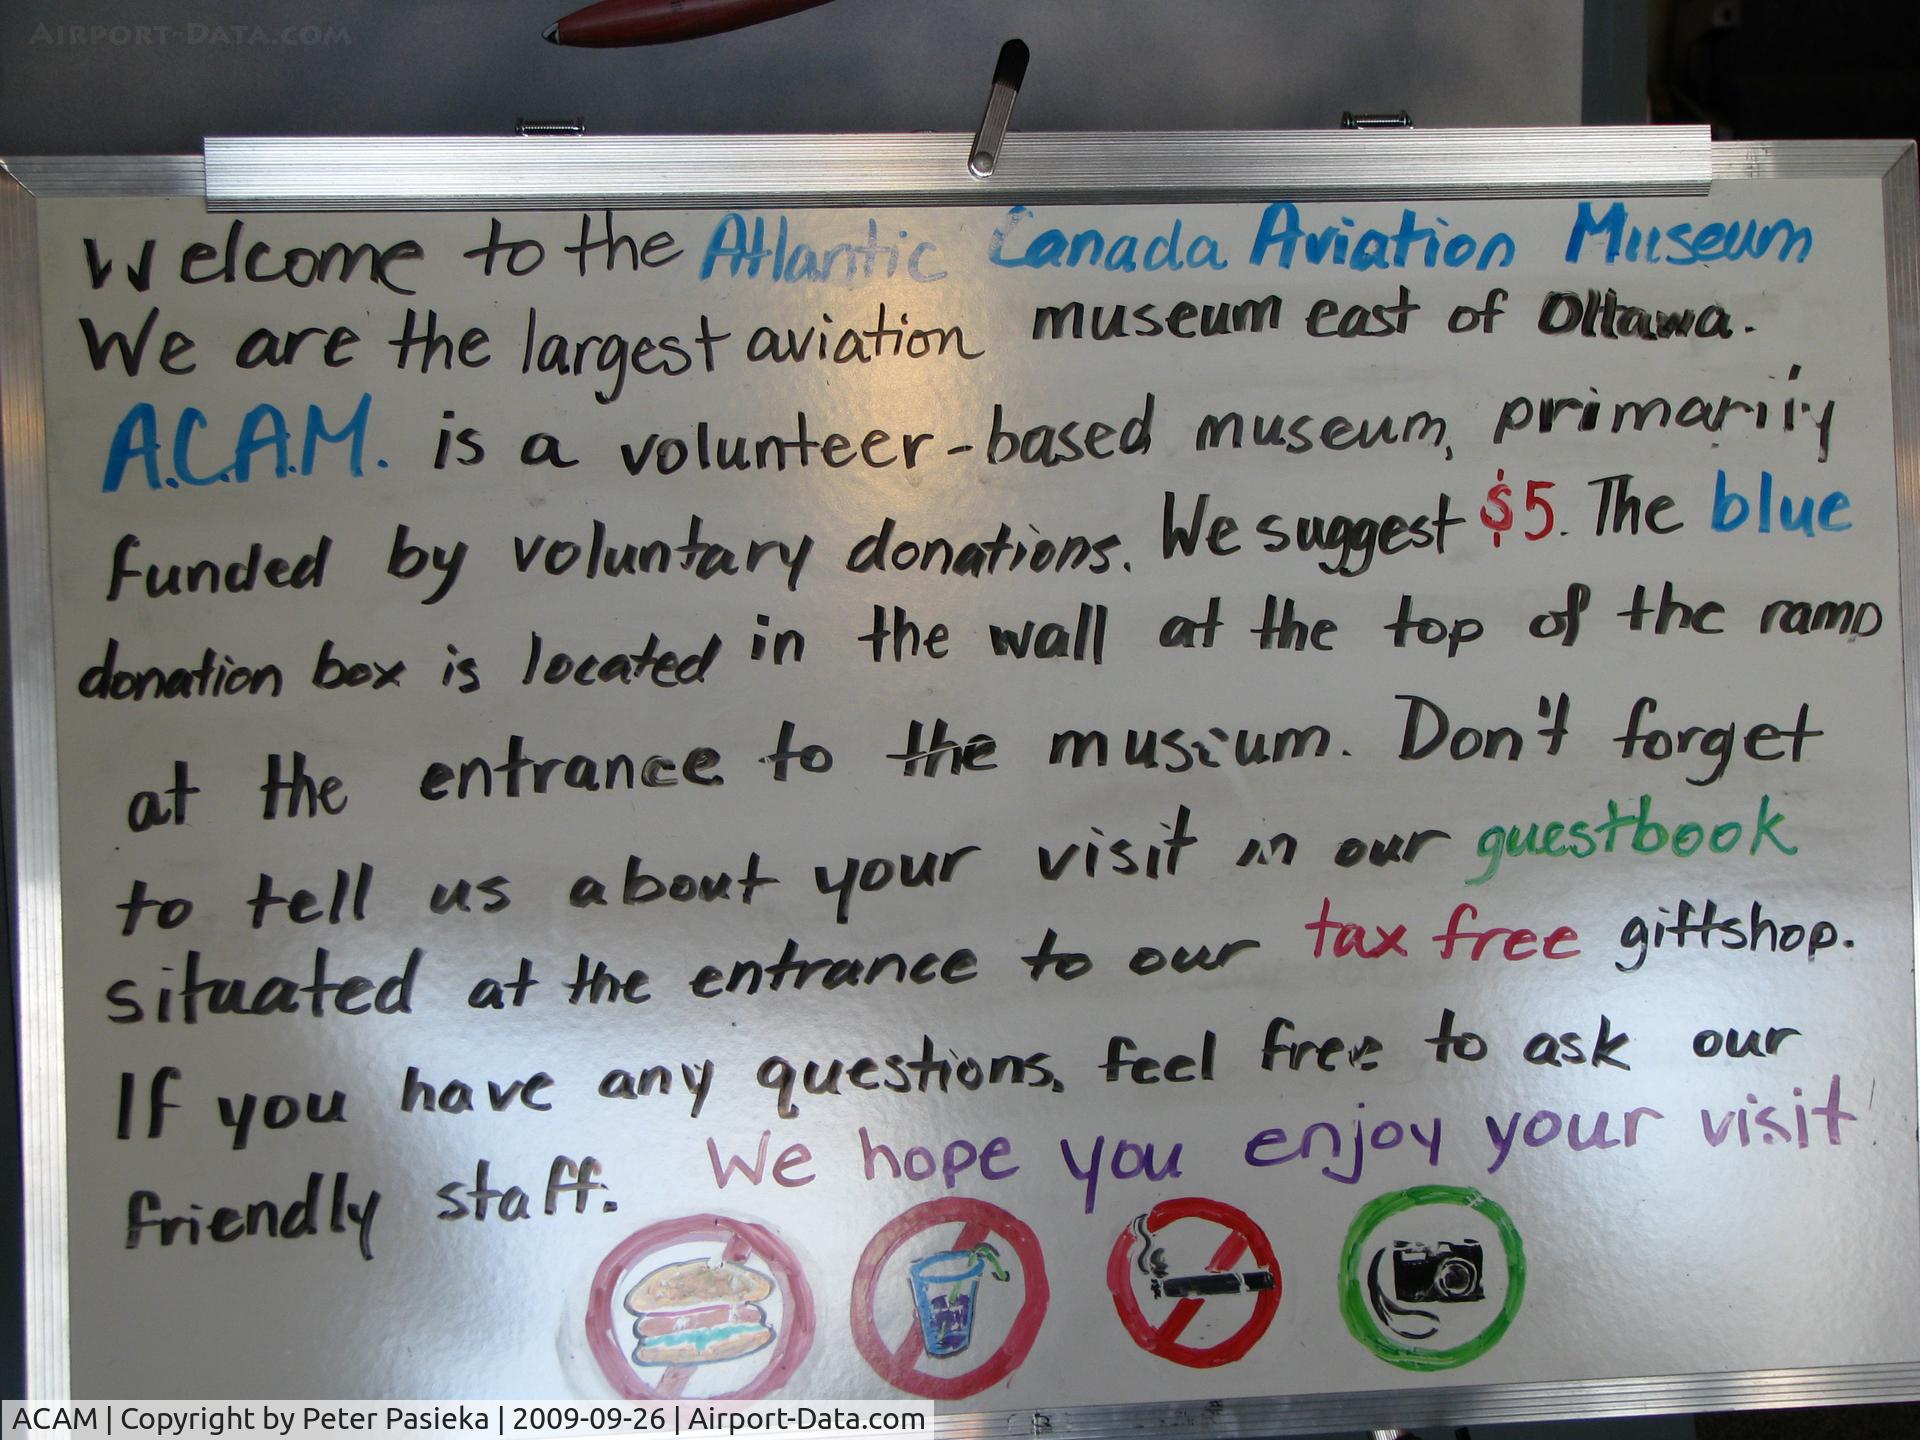 AIRPORT-DATA.COM
Welcome to the Atlantic Canada Aviation Museum
We are the largest aviation museum east of Ottawa.
A.C.A.M. is a volunteer-based museum, primarily
funded by voluntary donations. We suggest $5. The blue
donation box is located in the wall at the top of the ramp
at the entrance to the museum. Don't forget
to tell us about your visit in our guestbook
situated at the entrance to our tax free giftshop.
If you have any questions, feel free to ask our
friendly staff. We hope you enjoy your visit!
ACAM | Copyright by Peter Pasieka | 2009-09-26 | Airport-Data.com